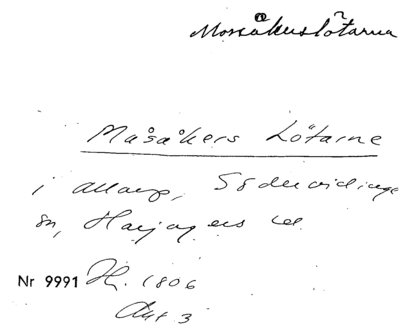 Mossåkerslötarna
Måsåkers Lötarne
i allung, Södervidinge
sn, Harjagers hd.
Nr 9991 Jh. 1806
Akt 3